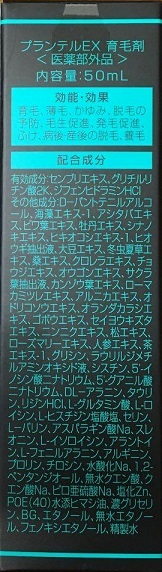 プランテルEX 育毛剤
＜医薬部外品＞
内容量:50mL
効能・効果
育毛、薄毛、かゆみ、脱毛の
予防、毛生促進、発毛促進、
ふけ、病後・産後の脱毛、養毛
配合成分
有効成分:センブリエキス、グリチルリ
チン酸2K、ジフェンヒドラミンHCl
その他成分:D-パントテニルアルコ
ール、海藻エキス-1、アシタバエキ
ス、ビワ葉エキス、牡丹エキス、シナノ
キエキス、ヒキオコシエキス-1、ヒオ
ウギ抽出液、大豆エキス、冬虫夏草エ
キス、桑エキス、クロレラエキス、チョ
ウジエキス、オウゴンエキス、サクラ
葉抽出液、カンゾウ葉エキス、ローマ
カミツレエキス、アルニカエキス、オド
リコソウエキス、オランダカラシエ
キス、ゴボウエキス、セイヨウキズタ
エキス、ニンニクエキス、松エキス、
ローズマリーエキス、人参エキス、茶
エキス-1、グリシン、ラウリルジメチ
ルアミンオキシド液、シスチン、5'-イ
ノシン酸二ナトリウム、5'-グアニル酸
二ナトリウム、DL-アラニン、タウリ
ン、リジンHCl、L-グルタミン酸、L-ロ
イシン、L-ヒスチジン塩酸塩、セリン、
L-バリン、アスパラギン酸Na、スレ
オニン、L-イソロイシン、アラントイ
ン、L-フェニルアラニン、アルギニン、
プロリン、チロシン、水酸化Na、1,2-
ペンタンジオール、無水クエン酸、ク
エン酸Na、ピロ亜硫酸Na、塩化Zn、
POE(40)水添ヒマシ油、濃グリセ
リン、BG、エタノール、無水エタノー
ル、フェノキシエタノール、精製水